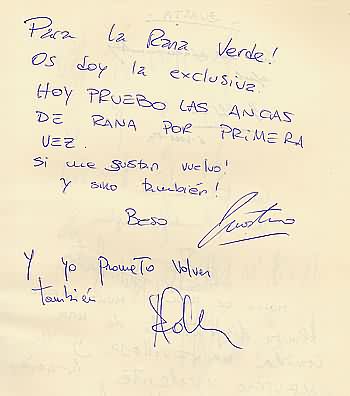 Para la Rana Verde!
Os doy la exclusiva.
HOY PRUEBO LAS ANCAS
DE RANA POR PRIMERA
VEZ.
Si me gustan vuelvo!
y sino también!
BESO
Y yo prometo volver
también